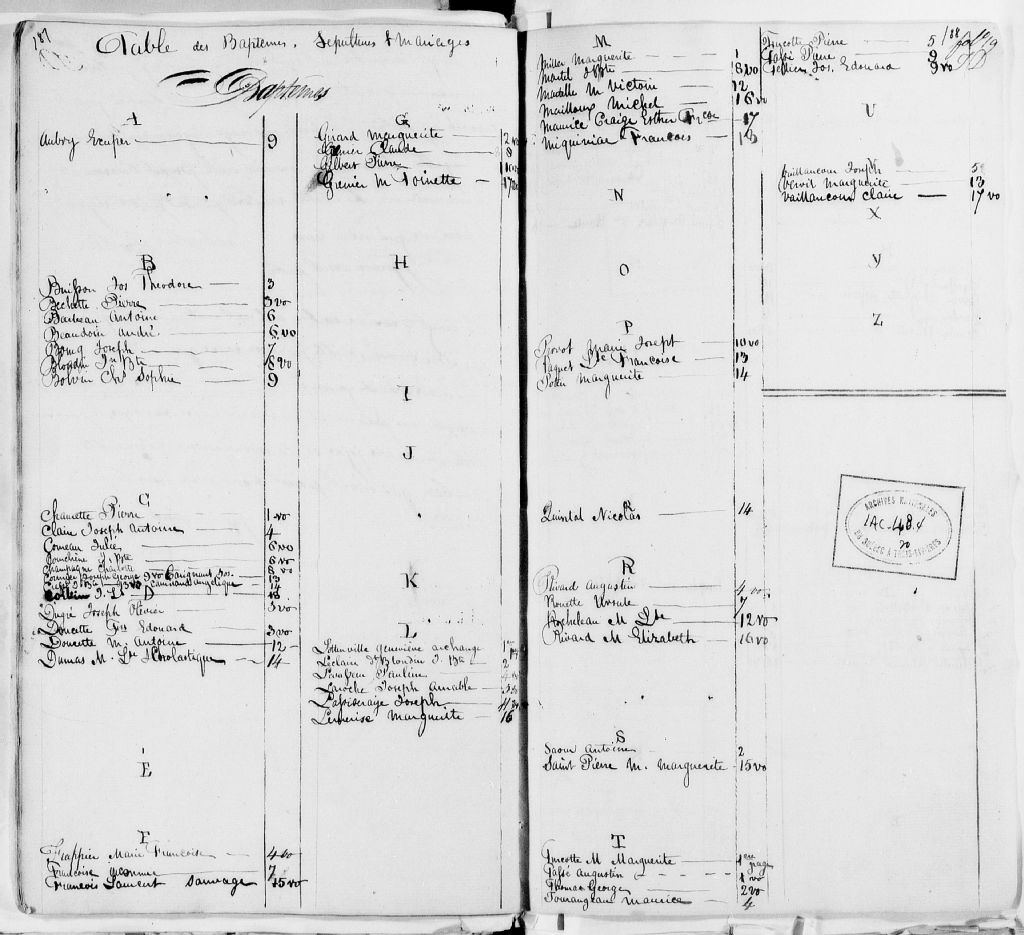 187
Table des Baptemes, Sepultures & Mariages
Baptemes
A
Aubry Exupier 9
B
Buisson Jos Theodore 3
Bechette Pierre 3 vo
Barbeau Antoine 6
Beaudoin André 6 vo
Bourg Joseph 7
Blondin Jn Bte 8 vo
Boivin Chs Sophie 9
C
Chaurette Pierre 1 vo
Clair Joseph Antoine 4
Comeau Julie 6 vo
Courchene J. Bpte 6 vo
Champagne Charlotte 8 vo
Joseph George 9 vo Carignant Jos. 13
14
D
Dugré Joseph Olivier 3 vo
Doucette Jos Edouard 3 vo
Doucette M. Antoine 12
Dumas M. Lse Scholastique 14
E
F
Frappier Marie Francoise 4 vo
Francoise 7
Francois Laurent Sauvage 15 vo
G
Girard Marguerite 2 vo
Grenier Claude 8
Gilbert Pierre
Grenier M Toinette 17
H
I
J
K
L
Lottinville Genevieve archange 1ere
Leclair dt Blondin J. Bte 2
Pauline 4 vo
Laroche Joseph Amable
Joseph 11
Lemerise Marguerite 16
M
Miller Marguerite 1
Martel 8 vo
Madelle M Victoire 12
Mailloux Michel 16 vo
Maurice Craige Esther Fcoe 17
Miquiniac Francois 13
N
O
P
Provot Marie Joseph 10 vo
Paquet Lse Francoise 13
Potier Marguerite 14
Q
Quintal Nicolas 14
R
Rivard Augustin 4 vo
Rouette Ursule
Rocheleau M Lse 12 vo
Rivard M Elizabeth 16 vo
S
Saour Antoine 2
Saint Pierre M. Marguerite 15 vo
T
Turcotte M Marguerite 1ere page
Tassé Augustin 1 vo
Thomas George 2 vo
Tourangeau Maurice 4
188
Turcotte Pierre 5
Tassé Pierre 9
Tellier Jos. Edouard 9 vo
U
V
Vaillancour Joseph 5
Vervil Marguerite 13
Vaillancour Claire 17 vo
X
Y
Z
ARCHIVES NATIONALES
IAC-48.4
20
DU QUÉBEC À TROIS-RIVIÈRES